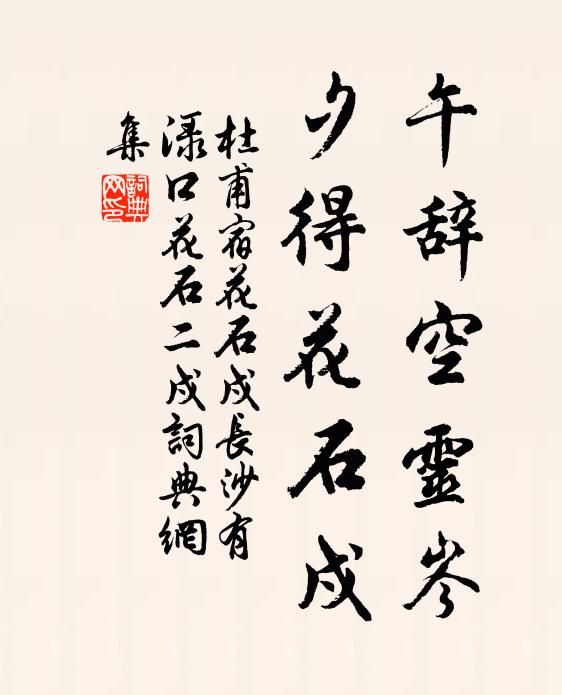 午辞空靈岑
夕得花石戍
杜甫宿花石戍長沙有
渌口花石二戍詞典網
集
詞典
网印